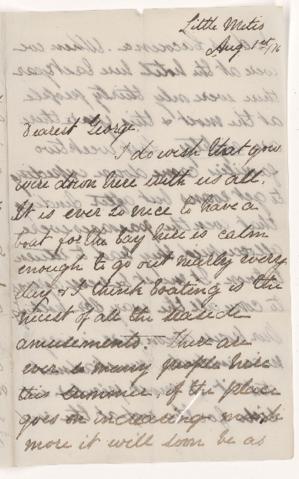 Little Metis
Aug 1st /76
Dearest George.
I do wish that you
were down here with us all.
It is ever so nice to have a
boat for the bay here is calm
enough to go out nearly every
day & I think boating is the
nicest of all the seaside
amusements. There are
ever so many people here
this summer if the place
goes on increasing
more it will soon be as